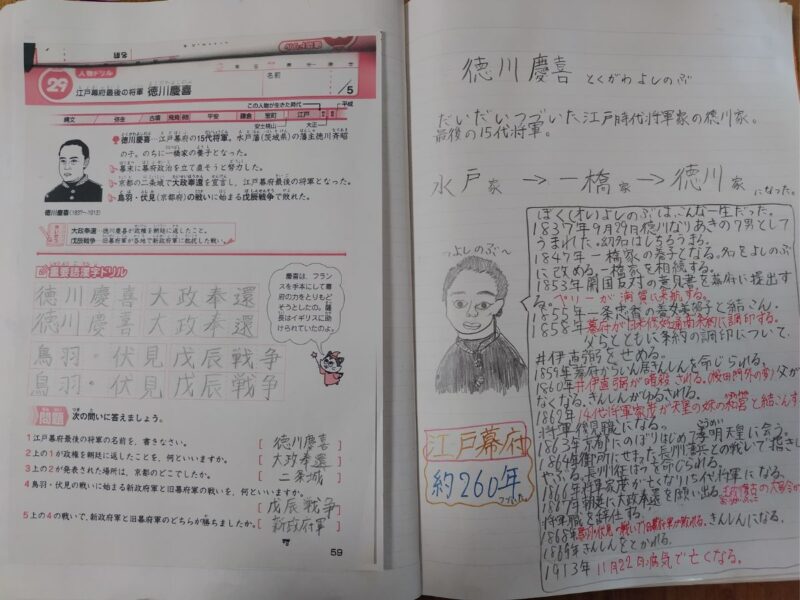 29
人物ドリル
江戸幕府最後の将軍 徳川慶喜
名前
/5
この人物が生きた時代
平成
縄文 弥生 古墳 飛鳥 奈良 平安 鎌倉 室町 江戸
安土桃山 大正
徳川慶喜…江戸幕府の15代将軍。水戸藩(茨城県)の藩主徳川斉昭
の子。のちに一橋家の養子となった。
幕末に幕府政治を立て直そうと努力した。
京都の二条城で大政奉還を宣言し、江戸幕府最後の将軍となった。
鳥羽・伏見(京都府)の戦いに始まる戊辰戦争で敗れた。
徳川慶喜(1837~1913)
大政奉還…徳川慶喜が政権を朝廷に返したこと。
戊辰戦争…旧幕府軍が各地で新政府軍に抵抗した戦い。
重要語漢字ドリル
徳川慶喜 大政奉還
徳川慶喜 大政奉還
鳥羽・伏見 戊辰戦争
鳥羽・伏見 戊辰戦争
慶喜は、フラン
スを手本にして幕
府の力をとりもど
そうとしたの。薩
長はイギリスに助
けられていたのよ。
問題 次の問いに答えましょう。
1 江戸幕府最後の将軍の名前を、書きなさい。 [徳川慶喜]
2 上の1が政権を朝廷に返したことを、何といいますか。 [大政奉還]
3 上の2が発表された場所は、京都のどこでしたか。 [二条城]
4 鳥羽・伏見の戦いに始まる新政府軍と旧幕府軍の戦いを、何といいますか。
[戊辰戦争]
5 上の4の戦いで、新政府軍と旧幕府軍のどちらが勝ちましたか。 [新政府軍]
59
徳川慶喜 とくがわよしのぶ
だいだいつづいた江戸時代将軍家の徳川家。
最後の15代将軍。
水戸家→一橋家→徳川家になった。
っよしのぶ~
江戸幕府
約260年
つづいた
よしのぶはこんな一生だった。
1837年9月29日徳川なりあきの7男として
うまれた。幼名はしちろうまろ。
1847年一橋家の養子となる。名をよしのぶ
に改める。一橋家を相続する。
1853年開国反対の意見書を幕府に提出す
る。ペリーが浦賀に来航する。
1855年一条忠香の養女美賀子と結こん。
1858年幕府が日米修好通商条約に調印する。
父らとともに条約の調印について、
井伊直弼をせめる。
1859年幕府からいん居きんしんを命じられる。
1860年井伊直弼が暗殺される。(桜田門外の変)父が
なくなる。きんしんがゆるされる。
14代将軍家茂が天皇の妹の和宮と結こんす
将軍後見職になる。
1863年京都にのぼりはじめて孝明天皇に会う。
1864年御所にせめた長州藩兵との戦いで指き
1866年将軍家茂が亡くなり15代将軍になる。
1867年朝廷に大政奉還を願い出る。
将軍職を辞任する。
1868年鳥羽・伏見の戦いで旧幕府軍が敗れる。きんしんになる。
1869年きんしんをとかれる。
1913年11月22日病気で亡くなる。